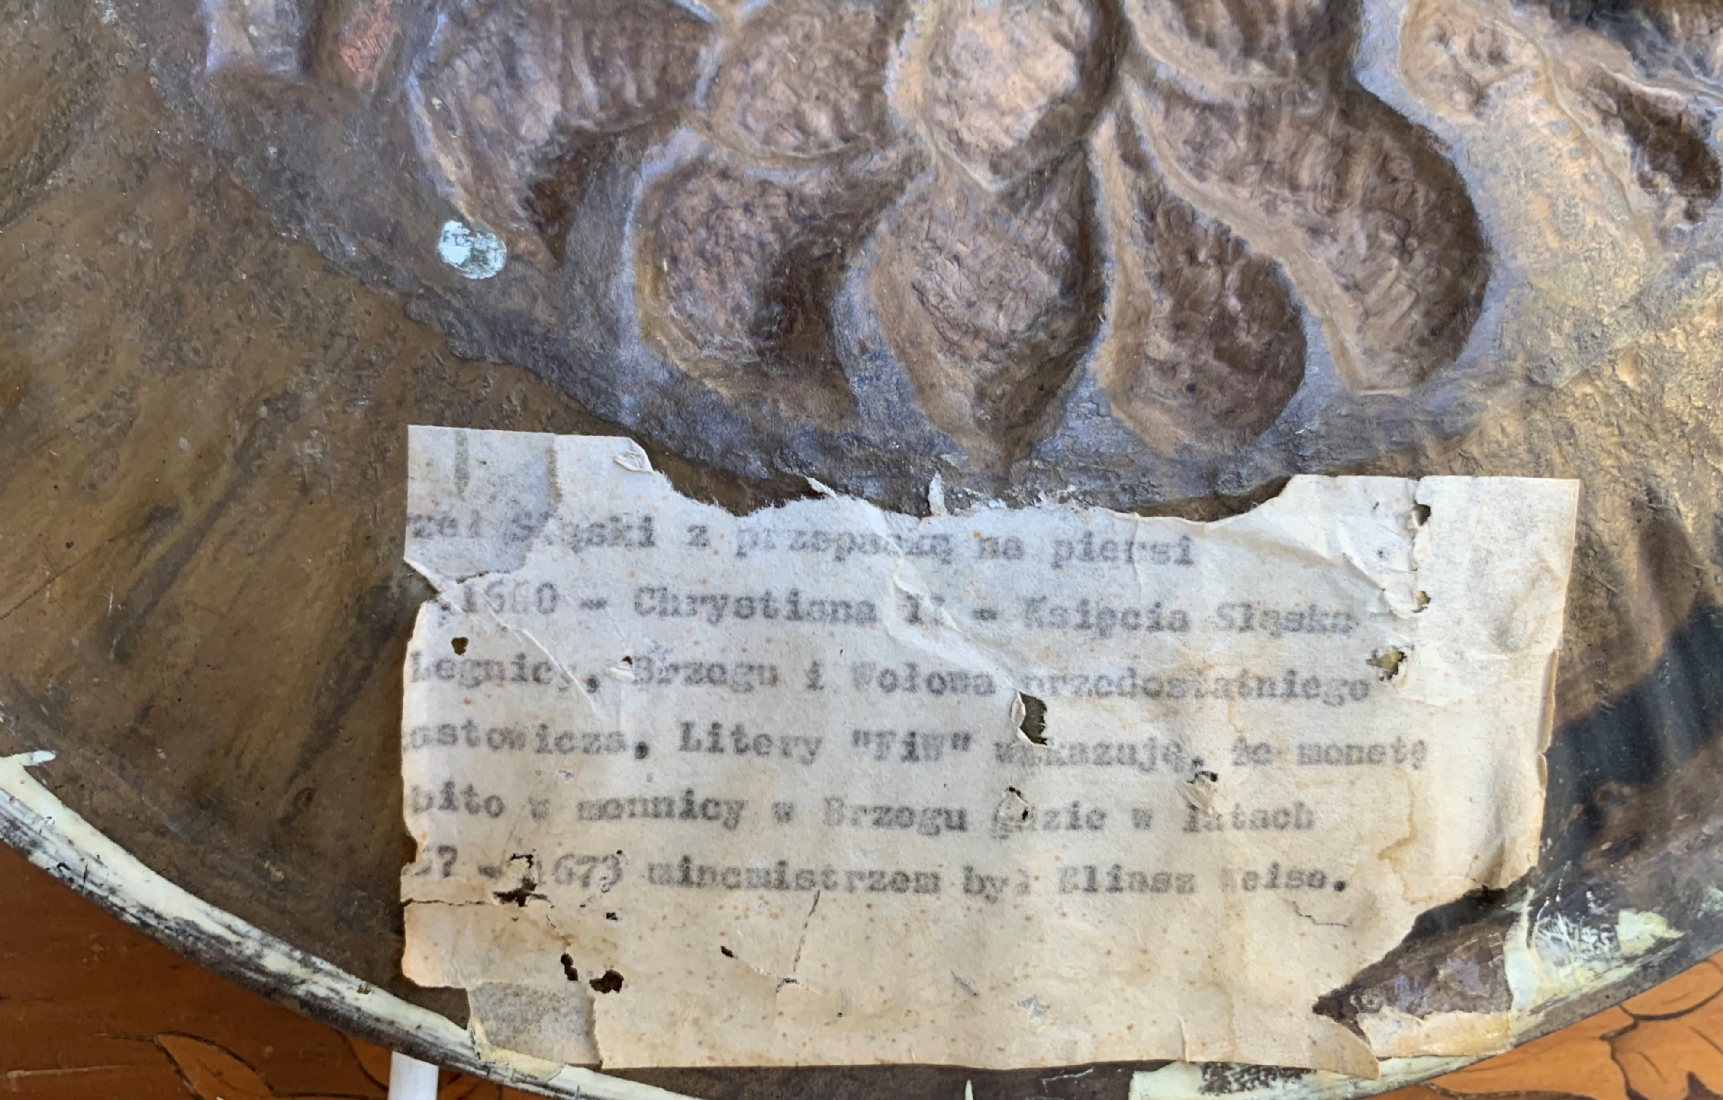 rzeł Śląski z przepaską na piersi
.1660 - Chrystiana - Księcia Śląska
Legnicy, Brzegu i Wołowa przedostatniego
astowicza. Litery "FiW" wskazują, że monetę
bito w mennicy w Brzegu gdzie w latach
57 - 1673 mincmistrzem był Eliasz